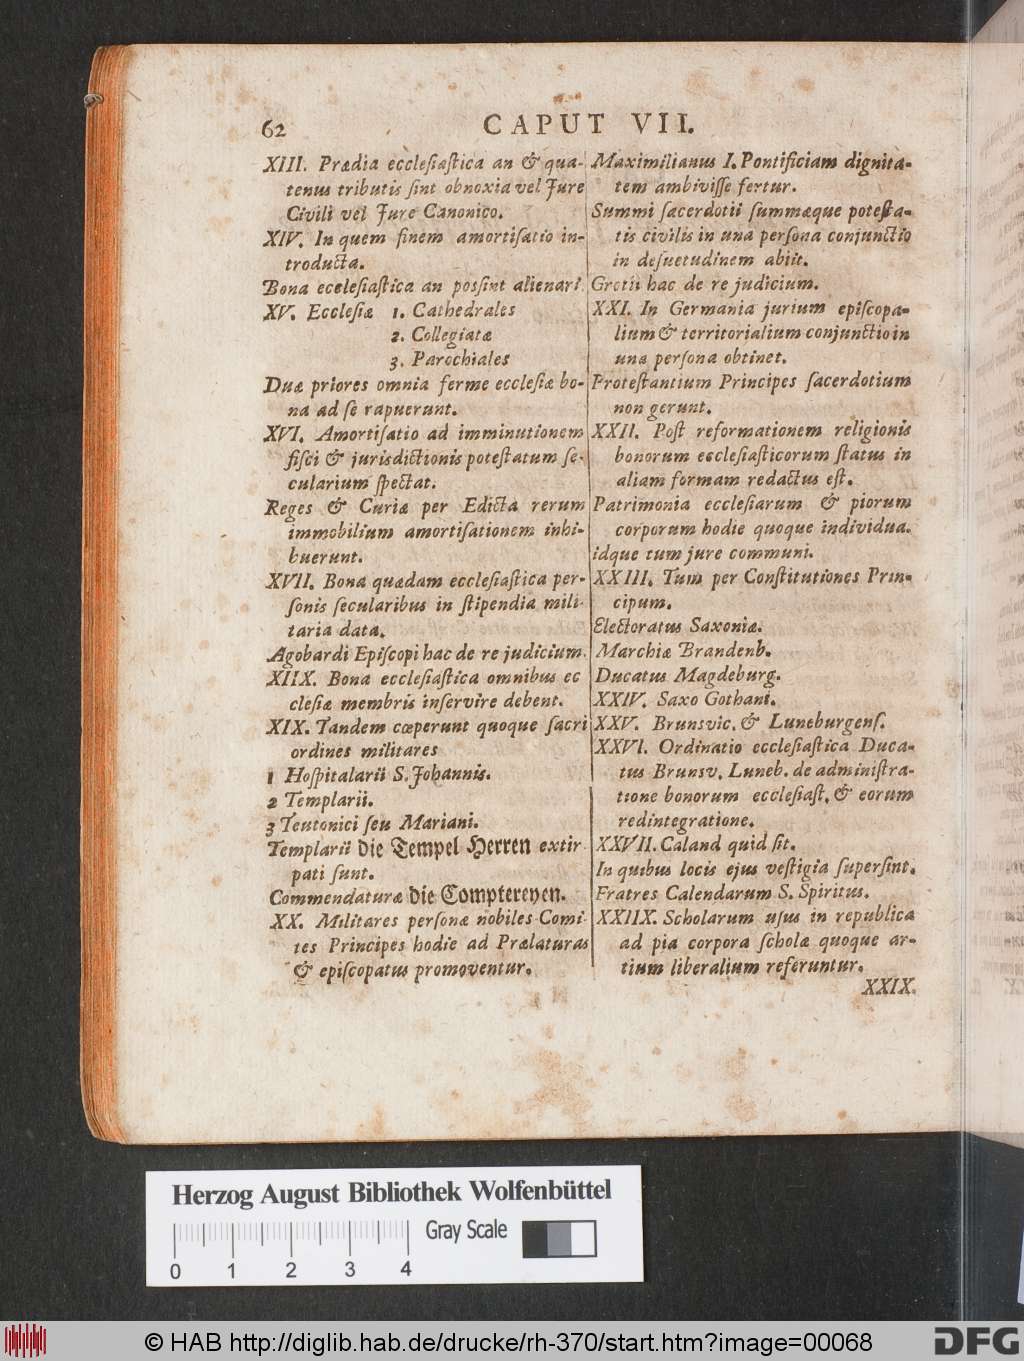 62
CAPUT VII.
XIII. Prædia ecclesiastica an & qua-
tenus tributis sint obnoxia vel Jure
Civili vel Jure Canonico.
XIV. In quem finem amortisatio in-
troducta.
Bona ecelesiastica an possint alienari
XV. Ecclesiæ 1. Cathedrales
2. Collegiatæ
3. Parochiales
Duæ priores omnia ferme ecclesiæ bo-
na ad se rapuerunt.
XVI. Amortisatio ad imminutionem
fisci & jurisdictionis potestatum se-
cularium spectat.
Reges & Curiæ per Edicta rerum
immobilium amortisationem inhi-
buerunt.
XVII. Bona quædam ecclesiastica per-
sonis secularibus in stipendia mili-
taria data.
Agobardi Episcopi hac de re judicium.
XIIX. Bona ecclesiastica omnibus ec
clesiæ membris inservire debent.
XIX. Tandem cœperunt quoque sacri
ordines militares
1 Hospitalarii S. Johannis.
2 Templarii.
3 Teutonici seu Mariani.
Templarii die Tempel Herren extir-
pati sunt.
Commendaturæ die Comptereyen.
XX. Militares personæ nobiles Comi-
tes Principes hodie ad Prælaturas
& episcopatus promoventur.
Maximilianus I. Pontificiam dignita-
tem ambivisse fertur.
Summi sacerdotii summæque potesta-
tis civilis in una persona conjunctio
in desuetudinem abiit.
Grotii hac de re judicium.
XXI. In Germania jurium episcopa-
lium & territorialium conjunctio in
una persona obtinet.
Protestantium Principes sacerdotium
non gerunt.
XXII. Post reformationem religionis
bonorum ecclesiasticorum status in
aliam formam redactus est.
Patrimonia ecclesiarum & piorum
corporum hodie quoque individua.
idque tum jure communi.
XXIII. Tum per Constitutiones Prin-
cipum.
Electoratus Saxoniæ.
Marchiæ Brandenb.
Ducatus Magdeburg.
XXIV. Saxo Gothani.
XXV. Brunsvic. & Luneburgens.
XXVI. Ordinatio ecclesiastica Duca-
tus Brunsv. Luneb. de administra-
tione bonorum ecclesiast. & eorum
redintegratione.
XXVII. Caland quid sit.
In quibus locis ejus vestigia supersint.
Fratres Calendarum S. Spiritus.
XXIIX. Scholarum usus in republica
ad pia corpora scholæ quoque ar-
tium liberalium referuntur.
XXIX.
Herzog August Bibliothek Wolfenbüttel
Gray Scale
0 1 2 3 4
© HAB http://diglib.hab.de/drucke/rh-370/start.htm?image=00068
DFG